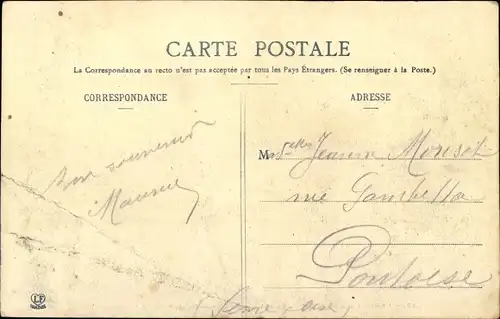 CARTE POSTALE
La Correspondance au recto n'est pas acceptée par tous les Pays Étrangers. (Se renseigner à la Poste.)
CORRESPONDANCE
Bon souvenir
Maurice
ADRESSE
Mselle Jeanne
rue Gambetta
Pontoise
Seine & Oise
LF